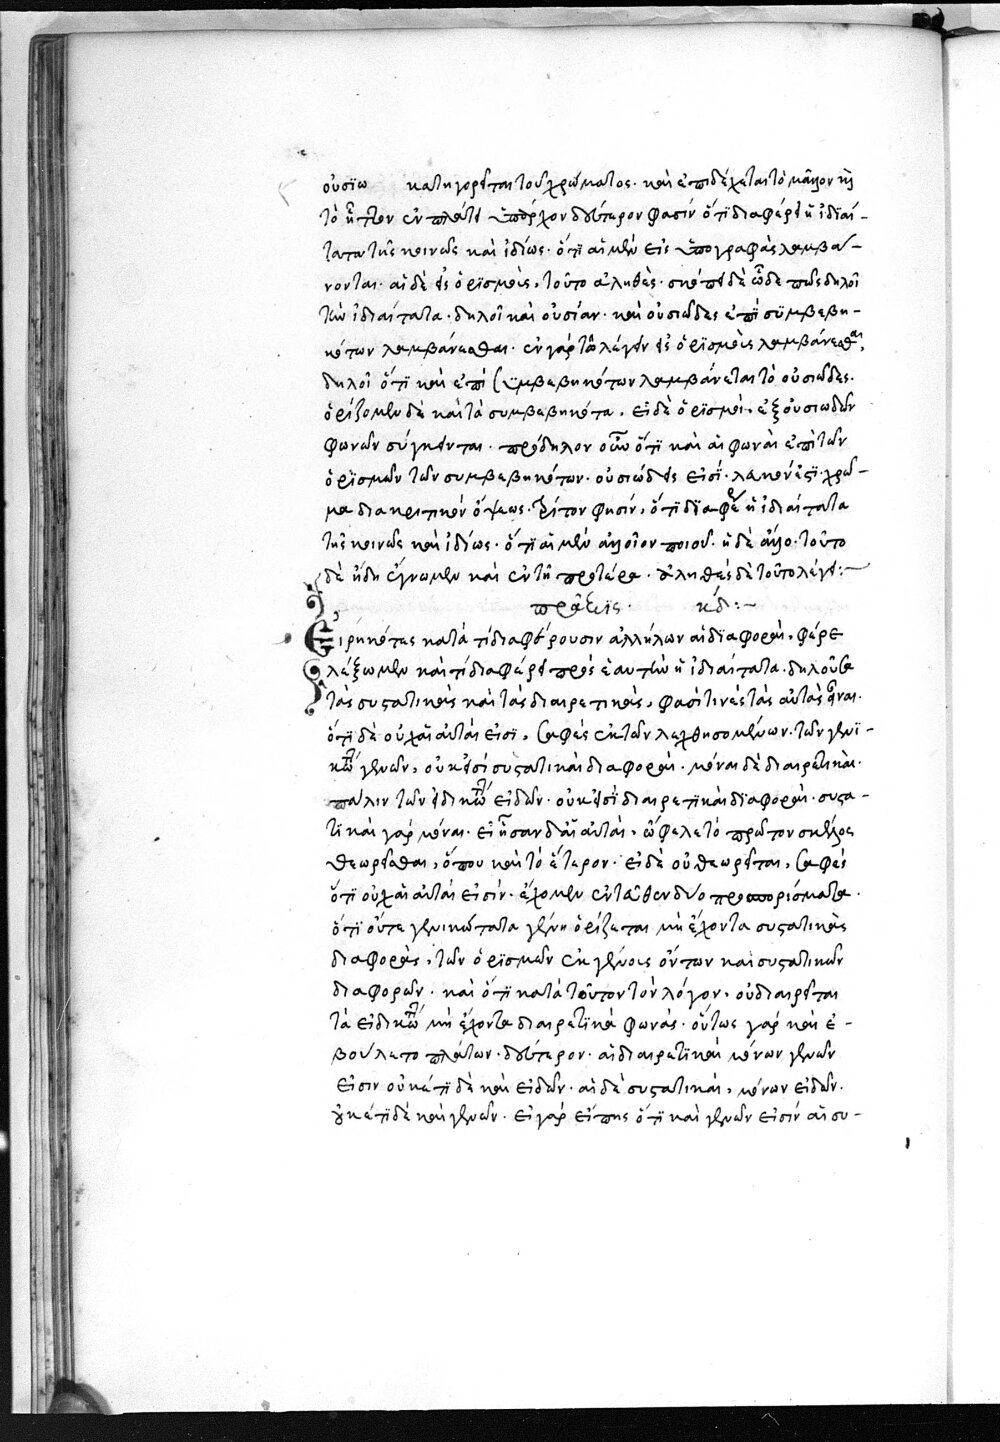 οὐσίω κατηγορεῖται τοῦ χρώματος. καὶ ἐπιδέχεται τὸ μᾶλλον καὶ
τὸ ἧττον ἐν πλάτει ὑπάρχον δεύτερον φασὶν ὅτι διαφέρει ἡ ἰδιαί-
τατα τῆς κοινῶς καὶ ἰδίως. ὅτι αἱ μὲν εἰς ὑπογραφὰς λαμβά-
νονται. αἱ δὲ εἰς ὁρισμοὺς, τοῦτο ἀληθὲς. σκόπει δὲ ὧδε πῶς δηλοῖ
τὴν ἰδιαίτατα. δηλοῖ καὶ οὐσίαν. καὶ οὐσιῶδες ἐπὶ συμβεβη-
κότων λαμβάνεσθαι. ἐν γὰρ τῶ λέγειν εἰς ὁρισμοὺς λαμβάνεσθαι,
δηλοῖ ὅτι καὶ ἐπὶ συμβεβηκότων λαμβάνεται τὸ οὐσιῶδες.
ὁρίζομεν δὲ καὶ τὰ συμβεβηκότα. εἰ δὲ ὁρισμοὶ, ἐξ οὐσιωδῶν
φωνῶν σύγκεινται. πρόδηλον οὖν ὅτι καὶ αἱ φωναὶ ἐπὶ τῶν
ὁρισμῶν τῶν συμβεβηκότων. οὐσιώδεις εἰσί. λευκόν ἐστι. χρῶ-
μα διακριτικὸν ὄψεως. τρίτον φησὶν, ὅτι διαφέρει ἡ ἰδιαίτατα
τῆς κοινῶς καὶ ἰδίως. ὅτι αἱ μὲν ἀλλοῖον ποιοῦσι. ἡ δὲ ἄλλο. τοῦτο
δὲ ἤδη ἔγνωμεν καὶ ἐν τῇ προτέρα. ἀληθὲς δὲ τοῦτο λέγει:~
πρᾶξις. κδ:~
Εἰρηκότες κατὰ τί διαφέρουσιν ἀλλήλων αἱ διαφοραὶ, φέρε
λέξωμεν καὶ τί διαφέρει πρὸς ἑαυτὴν ἡ ἰδιαίτατα. δηλοῦσα
τὰς συστατικὰς καὶ τὰς διαιρετικὰς, φασί τινὲς τὰς αὐτὰς εἶναι.
ὅτι δὲ οὐχ αἱ αὐταί εἰσι, σαφὲς ἐκ τῶν λεχθησομένων. τῶν γενι-
κωτάτων γενῶν, οὐκ εἰσὶ συστατικαὶ διαφοραὶ. μόναι δὲ διαιρετικαὶ.
πάλιν τῶν εἰδικωτάτων εἰδῶν. οὐκ εἰσὶ διαιρετικαὶ διαφοραὶ. συστα-
τικαὶ γὰρ μόναι. εἰ ἦσαν δὲ αἱ αὐταὶ, ὤφελε τὸ πρῶτον σκέλος
θεωρεῖσθαι, ὅπου καὶ τὸ ἕτερον. εἰ δὲ οὐ θεωρεῖται, σαφὲς
ὅτι οὐχ αἱ αὐταί εἰσιν. ἔχομεν ἐντεῦθεν δύο προπορίσματα.
ὅτι οὔτε γενικώτατα γένη ὁρίζεται μὴ ἔχοντα συστατικὰς
διαφορὰς, τῶν ὁρισμῶν ἐκ γένους ὄντων καὶ συστατικῶν
διαφορῶν. καὶ ὅτι κατὰ τοῦτον τὸν λόγον, οὐ διαιρεῖται
τὰ εἰδικώτατα μὴ ἔχοντα διαιρετικὰ φωνάς. οὕτως γὰρ καὶ ἐ-
βούλετο πλάτων. δεύτερον. αἱ διαιρετικαὶ μόνων γενῶν
εἰσιν οὐκέτι δὲ καὶ εἰδῶν. αἱ δὲ συστατικαὶ, μόνων εἰδῶν.
οὐκέτι δὲ καὶ γενῶν. εἰ γὰρ εἴπῃς ὅτι καὶ γενῶν εἰσὶν αἱ συ-